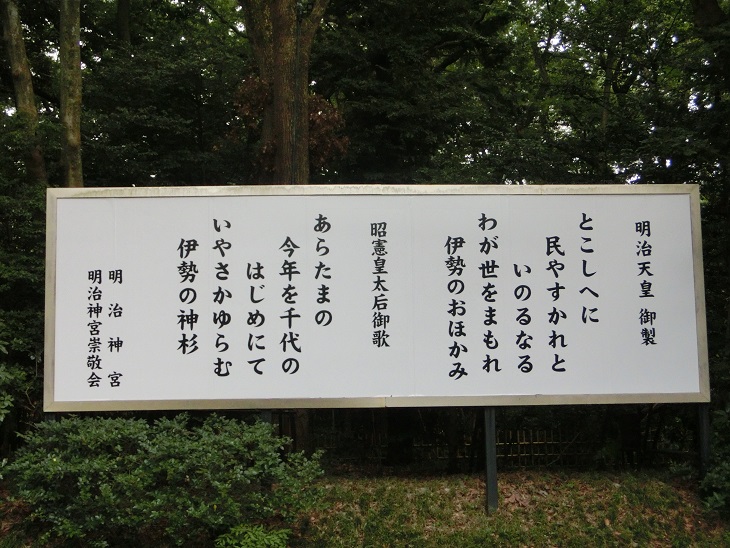 明治天皇 御製
とこしへに
民やすかれと
いのるなる
わが世をまもれ
伊勢のおほかみ
昭憲皇太后御歌
あらたまの
今年を千代の
はじめにて
いやさかゆらむ
伊勢の神杉
明治神宮
明治神宮崇敬会